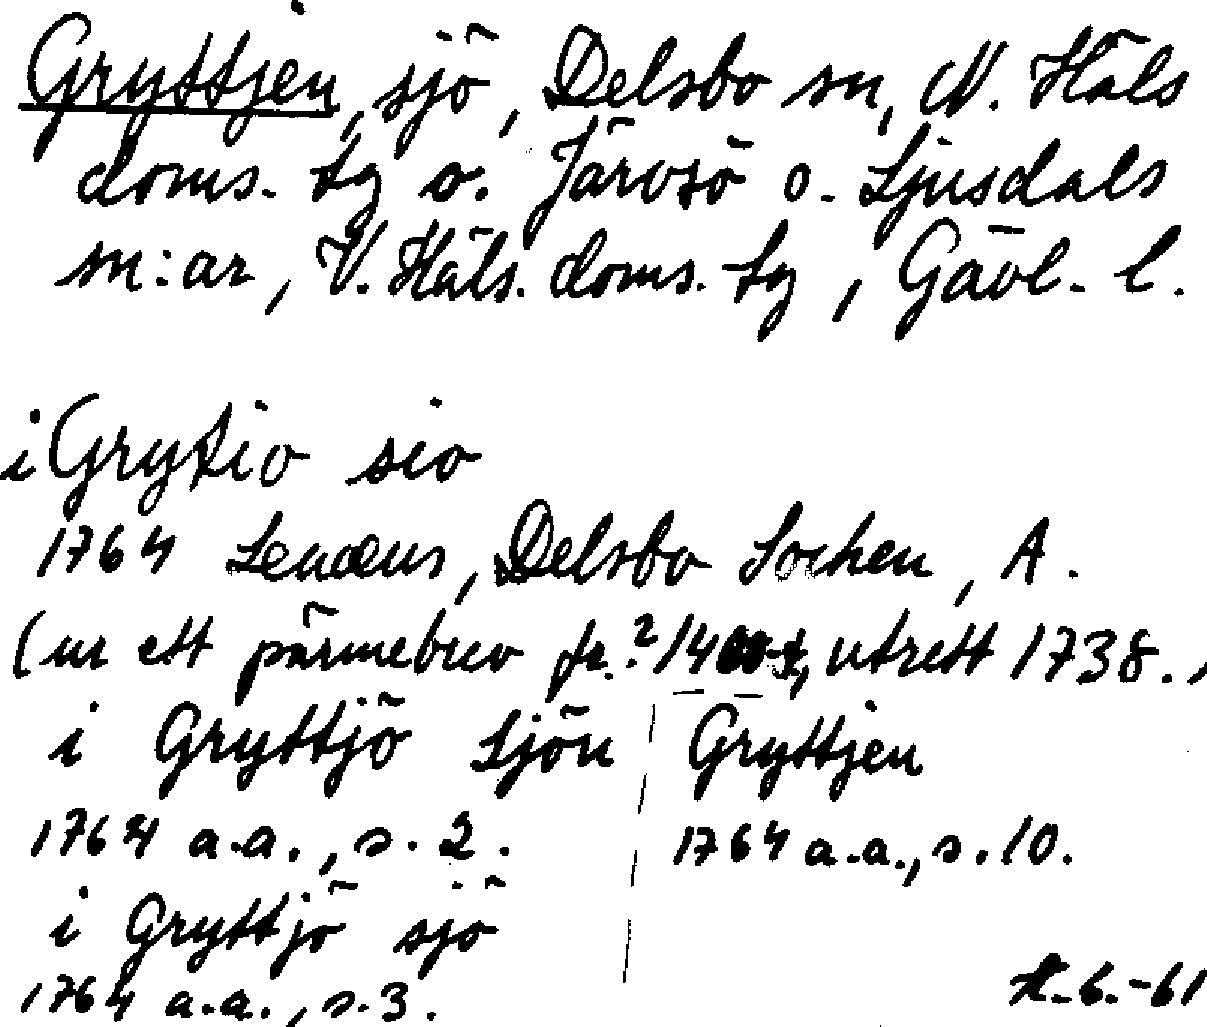 Gryttjen, sjö, Delsbo sn, N. Häls
doms. tg o. Järvsö o. Ljusdals
sn:ar, V. Häls. doms. tg, Gävl. l.
i Grytio sio
1764 Lenæus, Delsbo Socken, A.
(ur ett pärmebrev fr. ? 1400-t, utrett 1738.,
i Gryttjö Sjön
1764 a.a., s. 2.
i Gryttjö sjö
1764 a.a., s. 3.
Gryttjen
1764 a.a., s. 10.
6.-61